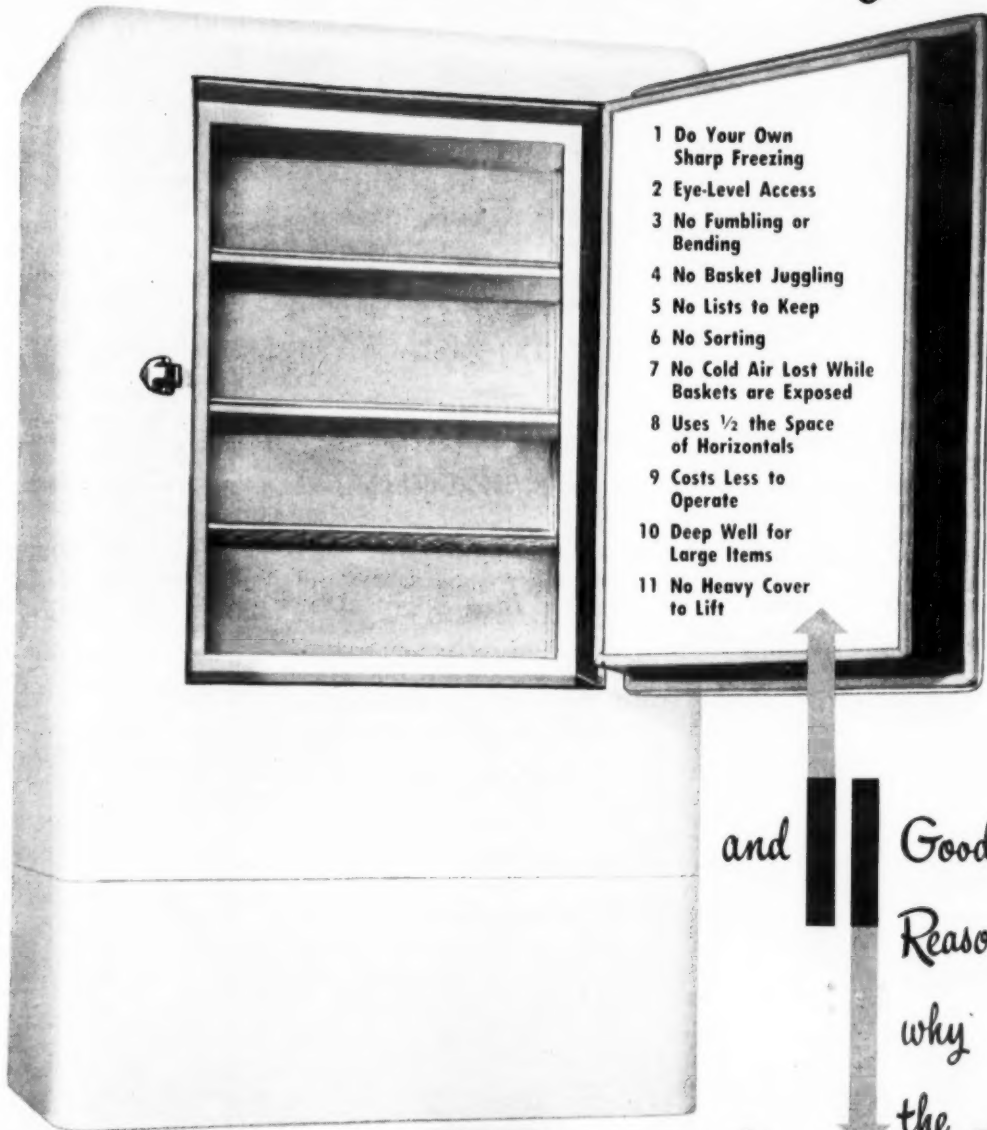 1 Do Your Own
Sharp Freezing
2 Eye-Level Access
3 No Fumbling or
Bending
4 No Basket Juggling
5 No Lists to Keep
6 No Sorting
7 No Cold Air Lost While
Baskets are Exposed
8 Uses ½ the Space
of Horizontals
9 Costs Less to
Operate
10 Deep Well for
Large Items
11 No Heavy Cover
to Lift
and 11 Good
Reaso
why
the